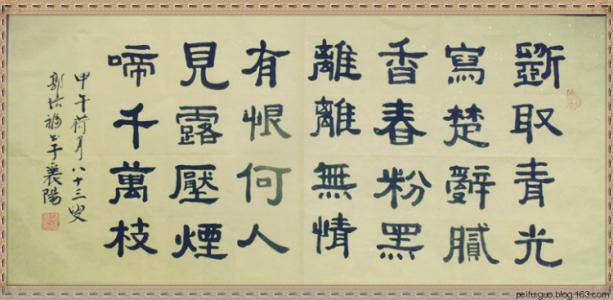 斲取青光
寫楚辭膩
香春粉黑
離離無情
有恨何人
見露壓煙
啼千萬枝
甲午荷月八十三叟
郭培福書于襄陽
peifuguo.blog.163.com